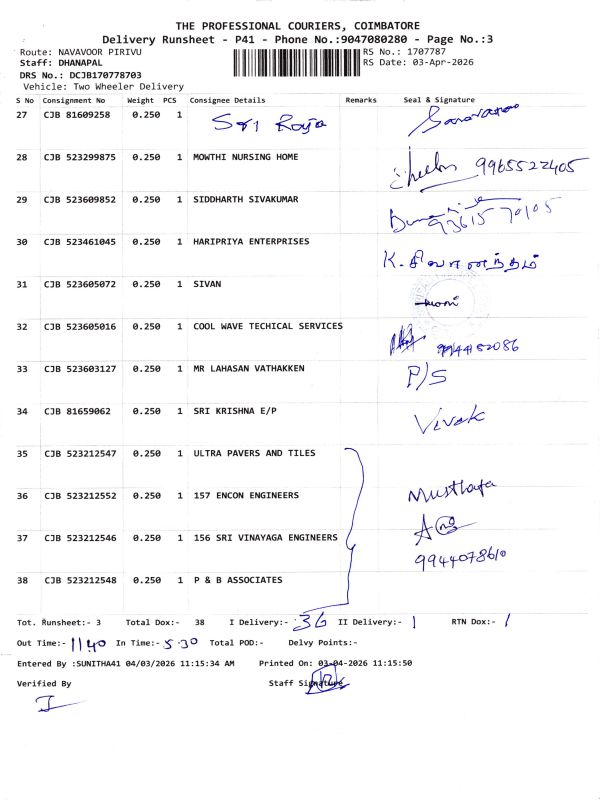 THE PROFESSIONAL COURIERS, COIMBATORE
Delivery Runsheet - P41 - Phone No.:9047080280 - Page No.:3
Route: NAVAVOOR PIRIVU RS No.: 1707787
Staff: DHANAPAL RS Date: 03-Apr-2026
DRS No.: DCJB170778703
Vehicle: Two Wheeler Delivery
S No Consignment No Weight PCS Consignee Details Remarks Seal & Signature
27 CJB 81609258 0.250 1 Sri Roja Saravanan
28 CJB 523299875 0.250 1 MOWTHI NURSING HOME 9965522405
29 CJB 523609852 0.250 1 SIDDHARTH SIVAKUMAR 9361570105
30 CJB 523461045 0.250 1 HARIPRIYA ENTERPRISES K. சிவானந்தம்
31 CJB 523605072 0.250 1 SIVAN
32 CJB 523605016 0.250 1 COOL WAVE TECHICAL SERVICES 9944152086
33 CJB 523603127 0.250 1 MR LAHASAN VATHAKKEN P/S
34 CJB 81659062 0.250 1 SRI KRISHNA E/P Vivek
35 CJB 523212547 0.250 1 ULTRA PAVERS AND TILES
36 CJB 523212552 0.250 1 157 ENCON ENGINEERS Musthafa
37 CJB 523212546 0.250 1 156 SRI VINAYAGA ENGINEERS
9944078610
38 CJB 523212548 0.250 1 P & B ASSOCIATES
Tot. Runsheet:- 3 Total Dox:- 38 I Delivery:- 36 II Delivery:- 1 RTN Dox:- 1
Out Time:- 1140 In Time:- 5.30 Total POD:- Delvy Points:-
Entered By :SUNITHA41 04/03/2026 11:15:34 AM Printed On: 03-04-2026 11:15:50
Verified By Staff Signature